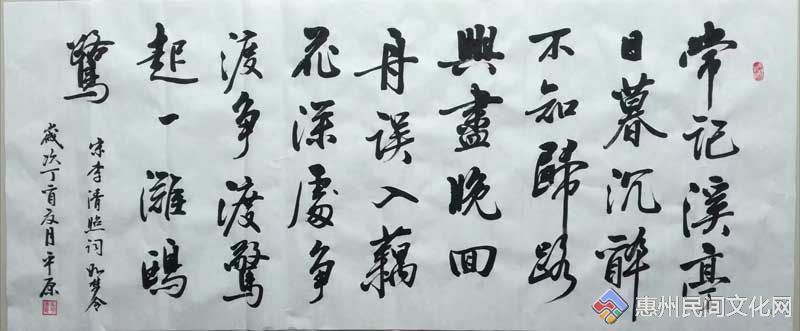 常记溪亭
日暮沉醉
不知歸路
興盡晚回
舟误入藕
花深處争
渡争渡驚
起一灘鷗
鷺
宋李清照词如梦令
歲次丁酉夏月平原
惠州民间文化网